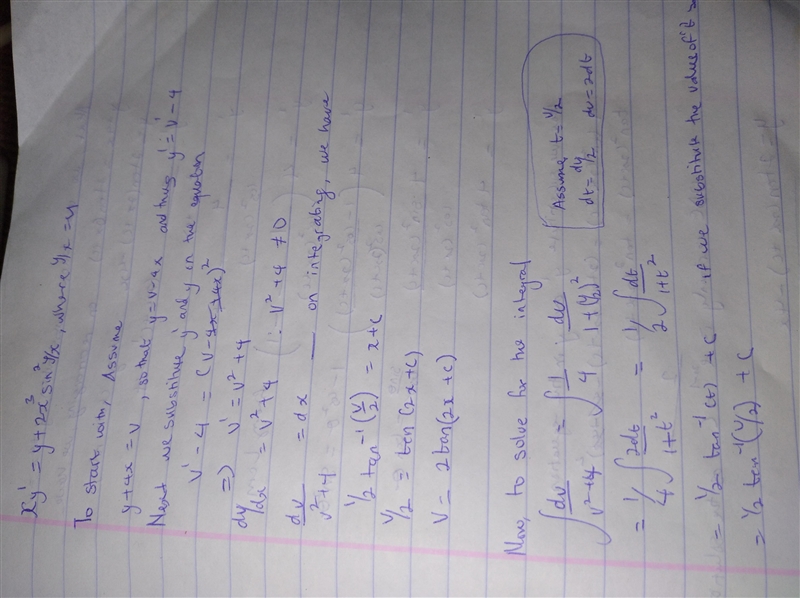 xy' = y + 2x³ sin² y/x, where y/x = u
To start with, Assume
y+4x = v, so that y = v-4x and thus y' = v' - 4
Next we substitute y' and y in the equation
v' - 4 = (v - 4x + 4x)²
=) v' = v² + 4
dy/dx = v² + 4 (∵ v² + 4 ≠ 0
dv/v²+4 = dx — on integrating, we have
1/2 tan⁻¹(v/2) = x+c
v/2 = tan(2x+c)
v = 2tan(2x+c)
Now, to solve for the integral
∫ dv/v²+4 = ∫ 1/4 dv/1+(v/2)²
Assume, t = v/2
dt = dy/1/2 dv = 2dt
= 1/4 ∫ 2dt/1+t² = 1/2 ∫ dt/1+t²
= 1/2 tan⁻¹(t) + c if we substitute the value of t
= 1/2 tan⁻¹(v/2) + c